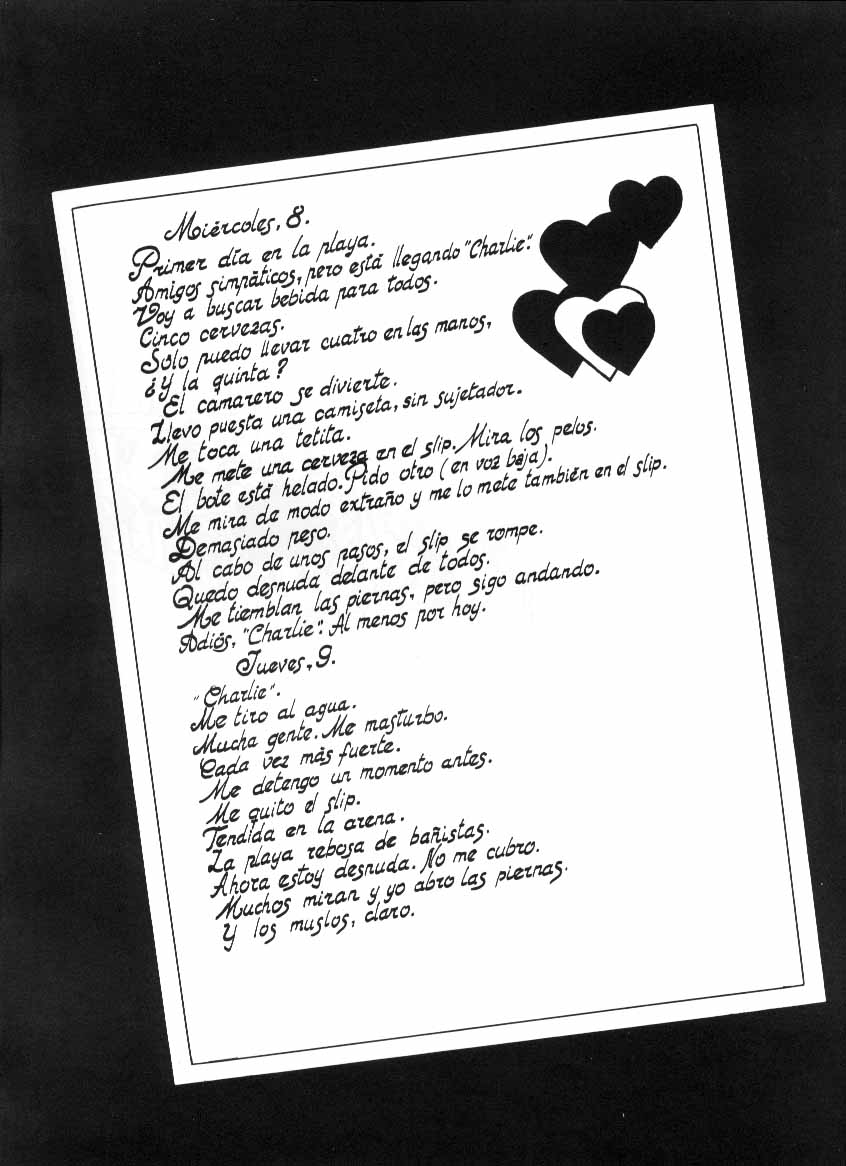 Miércoles, 8.
Primer día en la playa.
Amigos simpáticos, pero está llegando "Charlie".
Voy a buscar bebida para todos.
Cinco cervezas.
Sólo puedo llevar cuatro en las manos,
¿Y la quinta?
El camarero se divierte.
Llevo puesta una camiseta, sin sujetador.
Me toca una tetita.
Me mete una cerveza en el slip. Mira los pelos.
El bote está helado. Pido otro (en voz baja).
Me mira de modo extraño y me lo mete también en el slip.
Demasiado peso.
Al cabo de unos pasos, el slip se rompe.
Quedo desnuda delante de todos.
Me tiemblan las piernas, pero sigo andando.
Adiós, "Charlie". Al menos por hoy.
Jueves, 9.
"Charlie".
Me tiro al agua.
Mucha gente. Me masturbo.
Cada vez más fuerte.
Me detengo un momento antes.
Me quito el slip.
Tendida en la arena.
La playa rebosa de bañistas.
Ahora estoy desnuda. No me cubro.
Muchos miran y yo abro las piernas.
Y los muslos, claro.